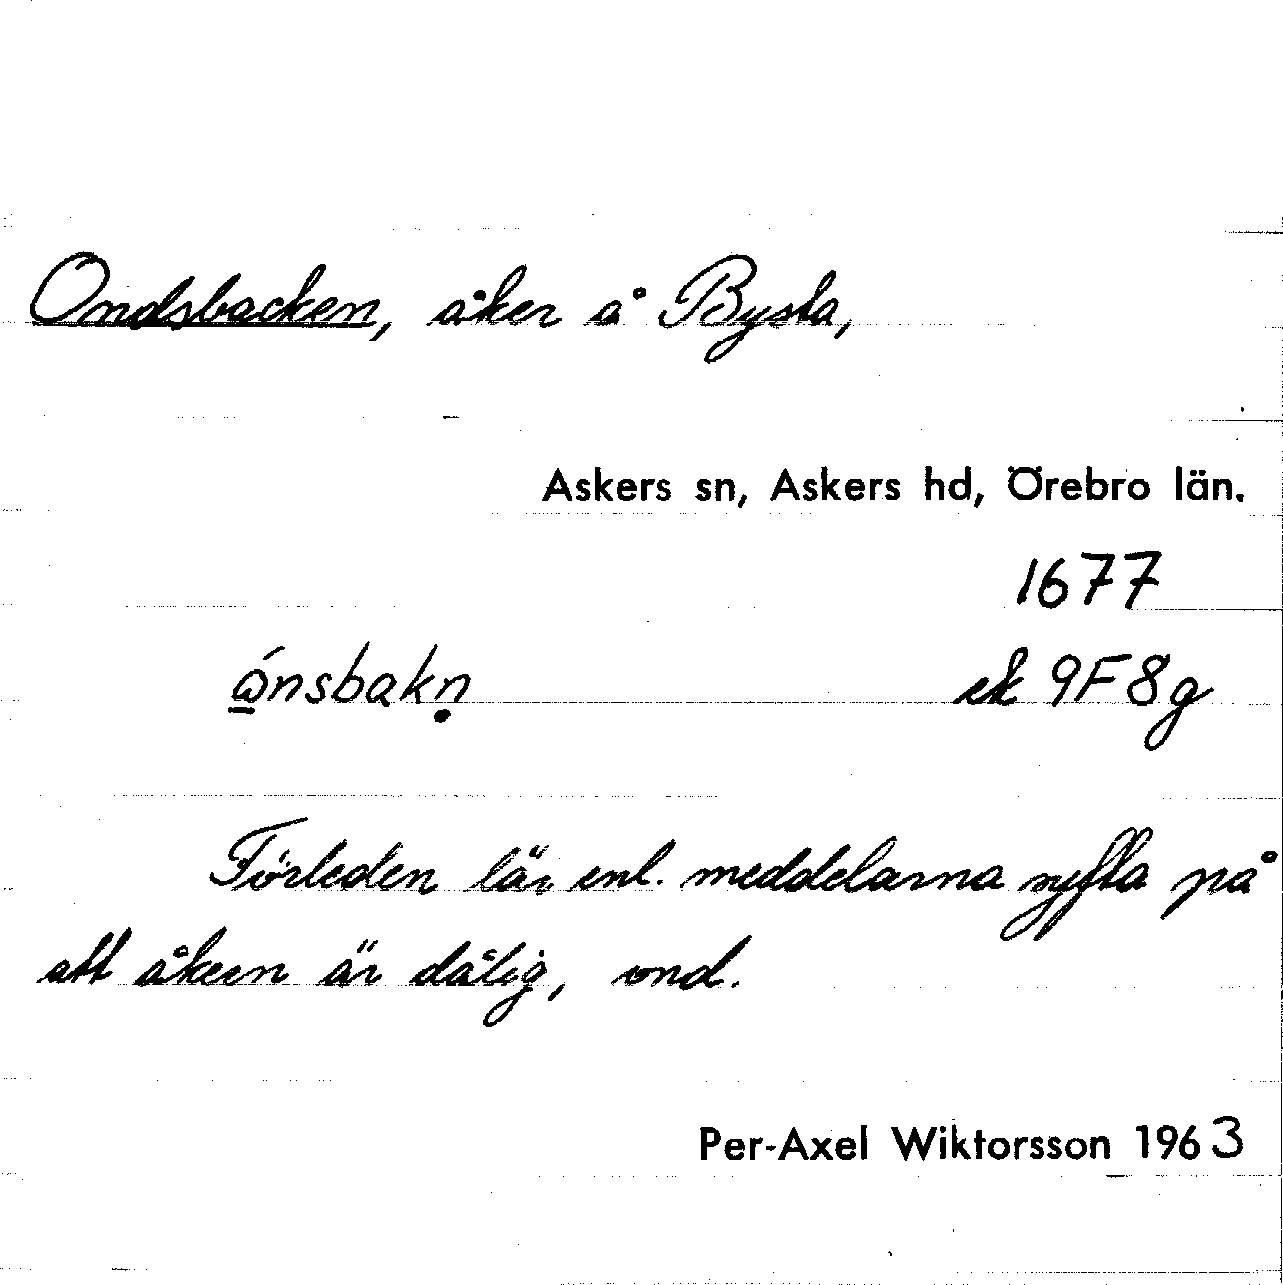 Ondsbacken, åker å Bysta,
Askers sn, Askers hd, Örebro län.
1677
ώ̲nsbakṇ ek 9F8g
Förleden lär enl. meddelarna syfta på
att åkern är dålig, ond.
Per-Axel Wiktorsson 1963